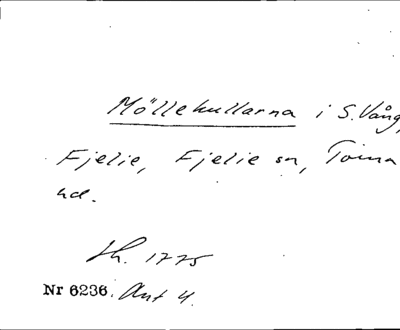 Möllekullarna i S. Vång,
Fjelie, Fjelie sn, Torna
hd.
Sk. 1775
Nr 6236. Akt 4.